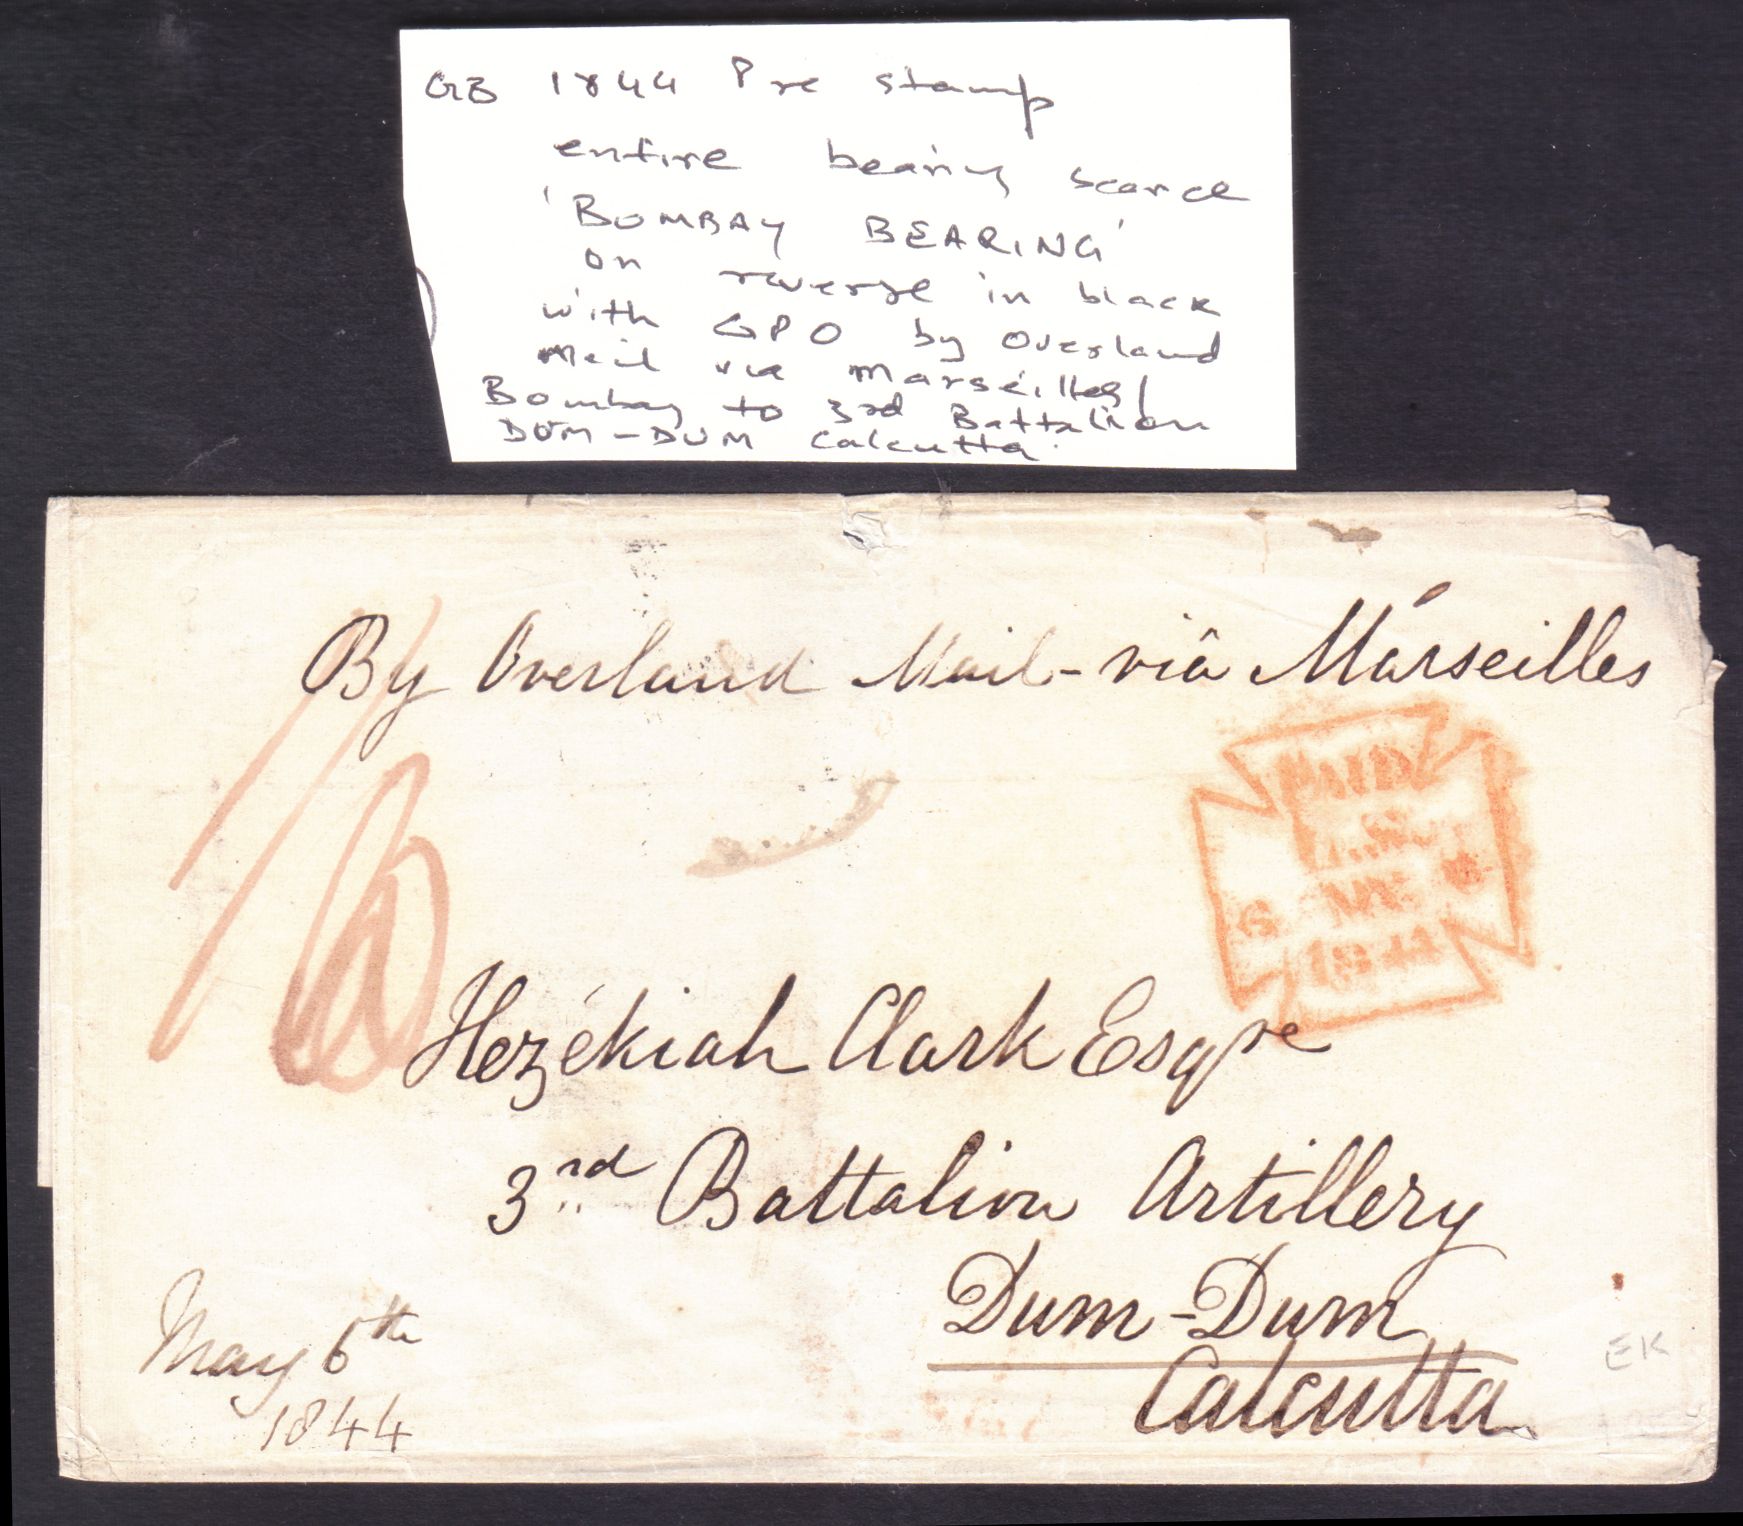 GB 1844 Pre stamp
entire bearing scarce
'BOMBAY BEARING'
on reverse in black
with GPO by Overland
Mail via Marseilles/
Bombay to 3rd Battalion
DUM-DUM Calcutta.
By Overland Mail - viâ Marseilles
1/10
PAID
MY
1844
Hezékiah Clark Esqre
3rd Battalion Artillery
Dum-Dum
Calcutta
May 6th
1844
EK